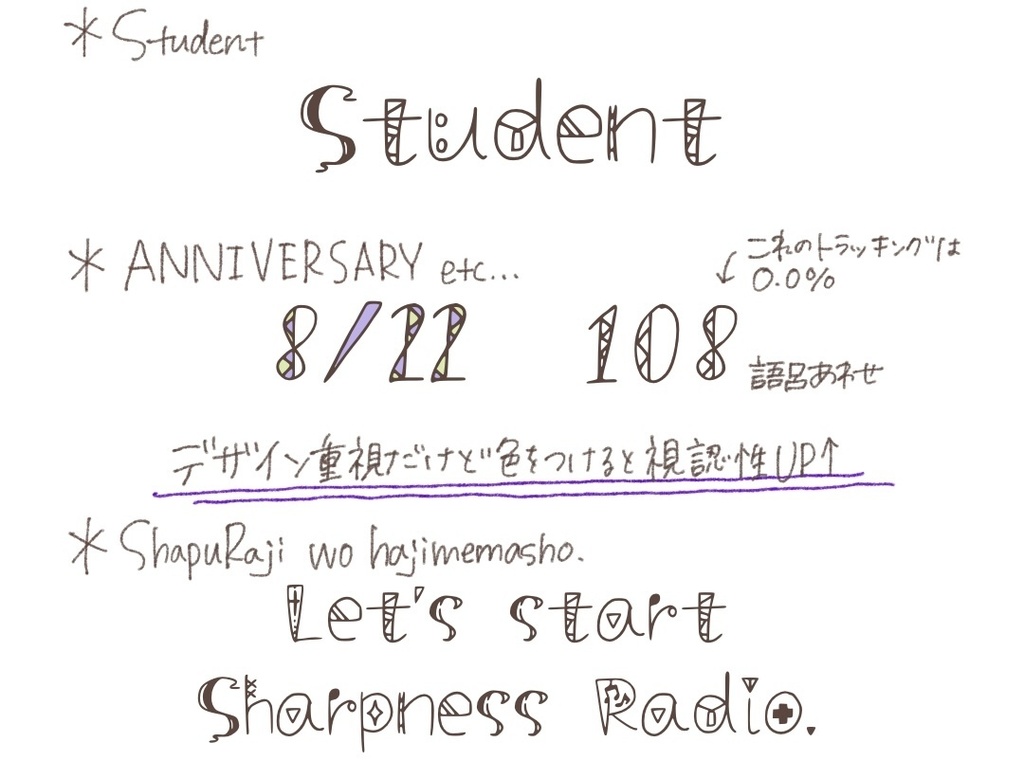 *Student
Student
*ANNIVERSARY etc...
これのトラッキングは
0.0%
8/22 108
語呂あわせ
デザイン重視だけど色をつけると視認性UP↑
*ShapuRaji wo hajimemasho.
Let's start
Sharpness Radio.